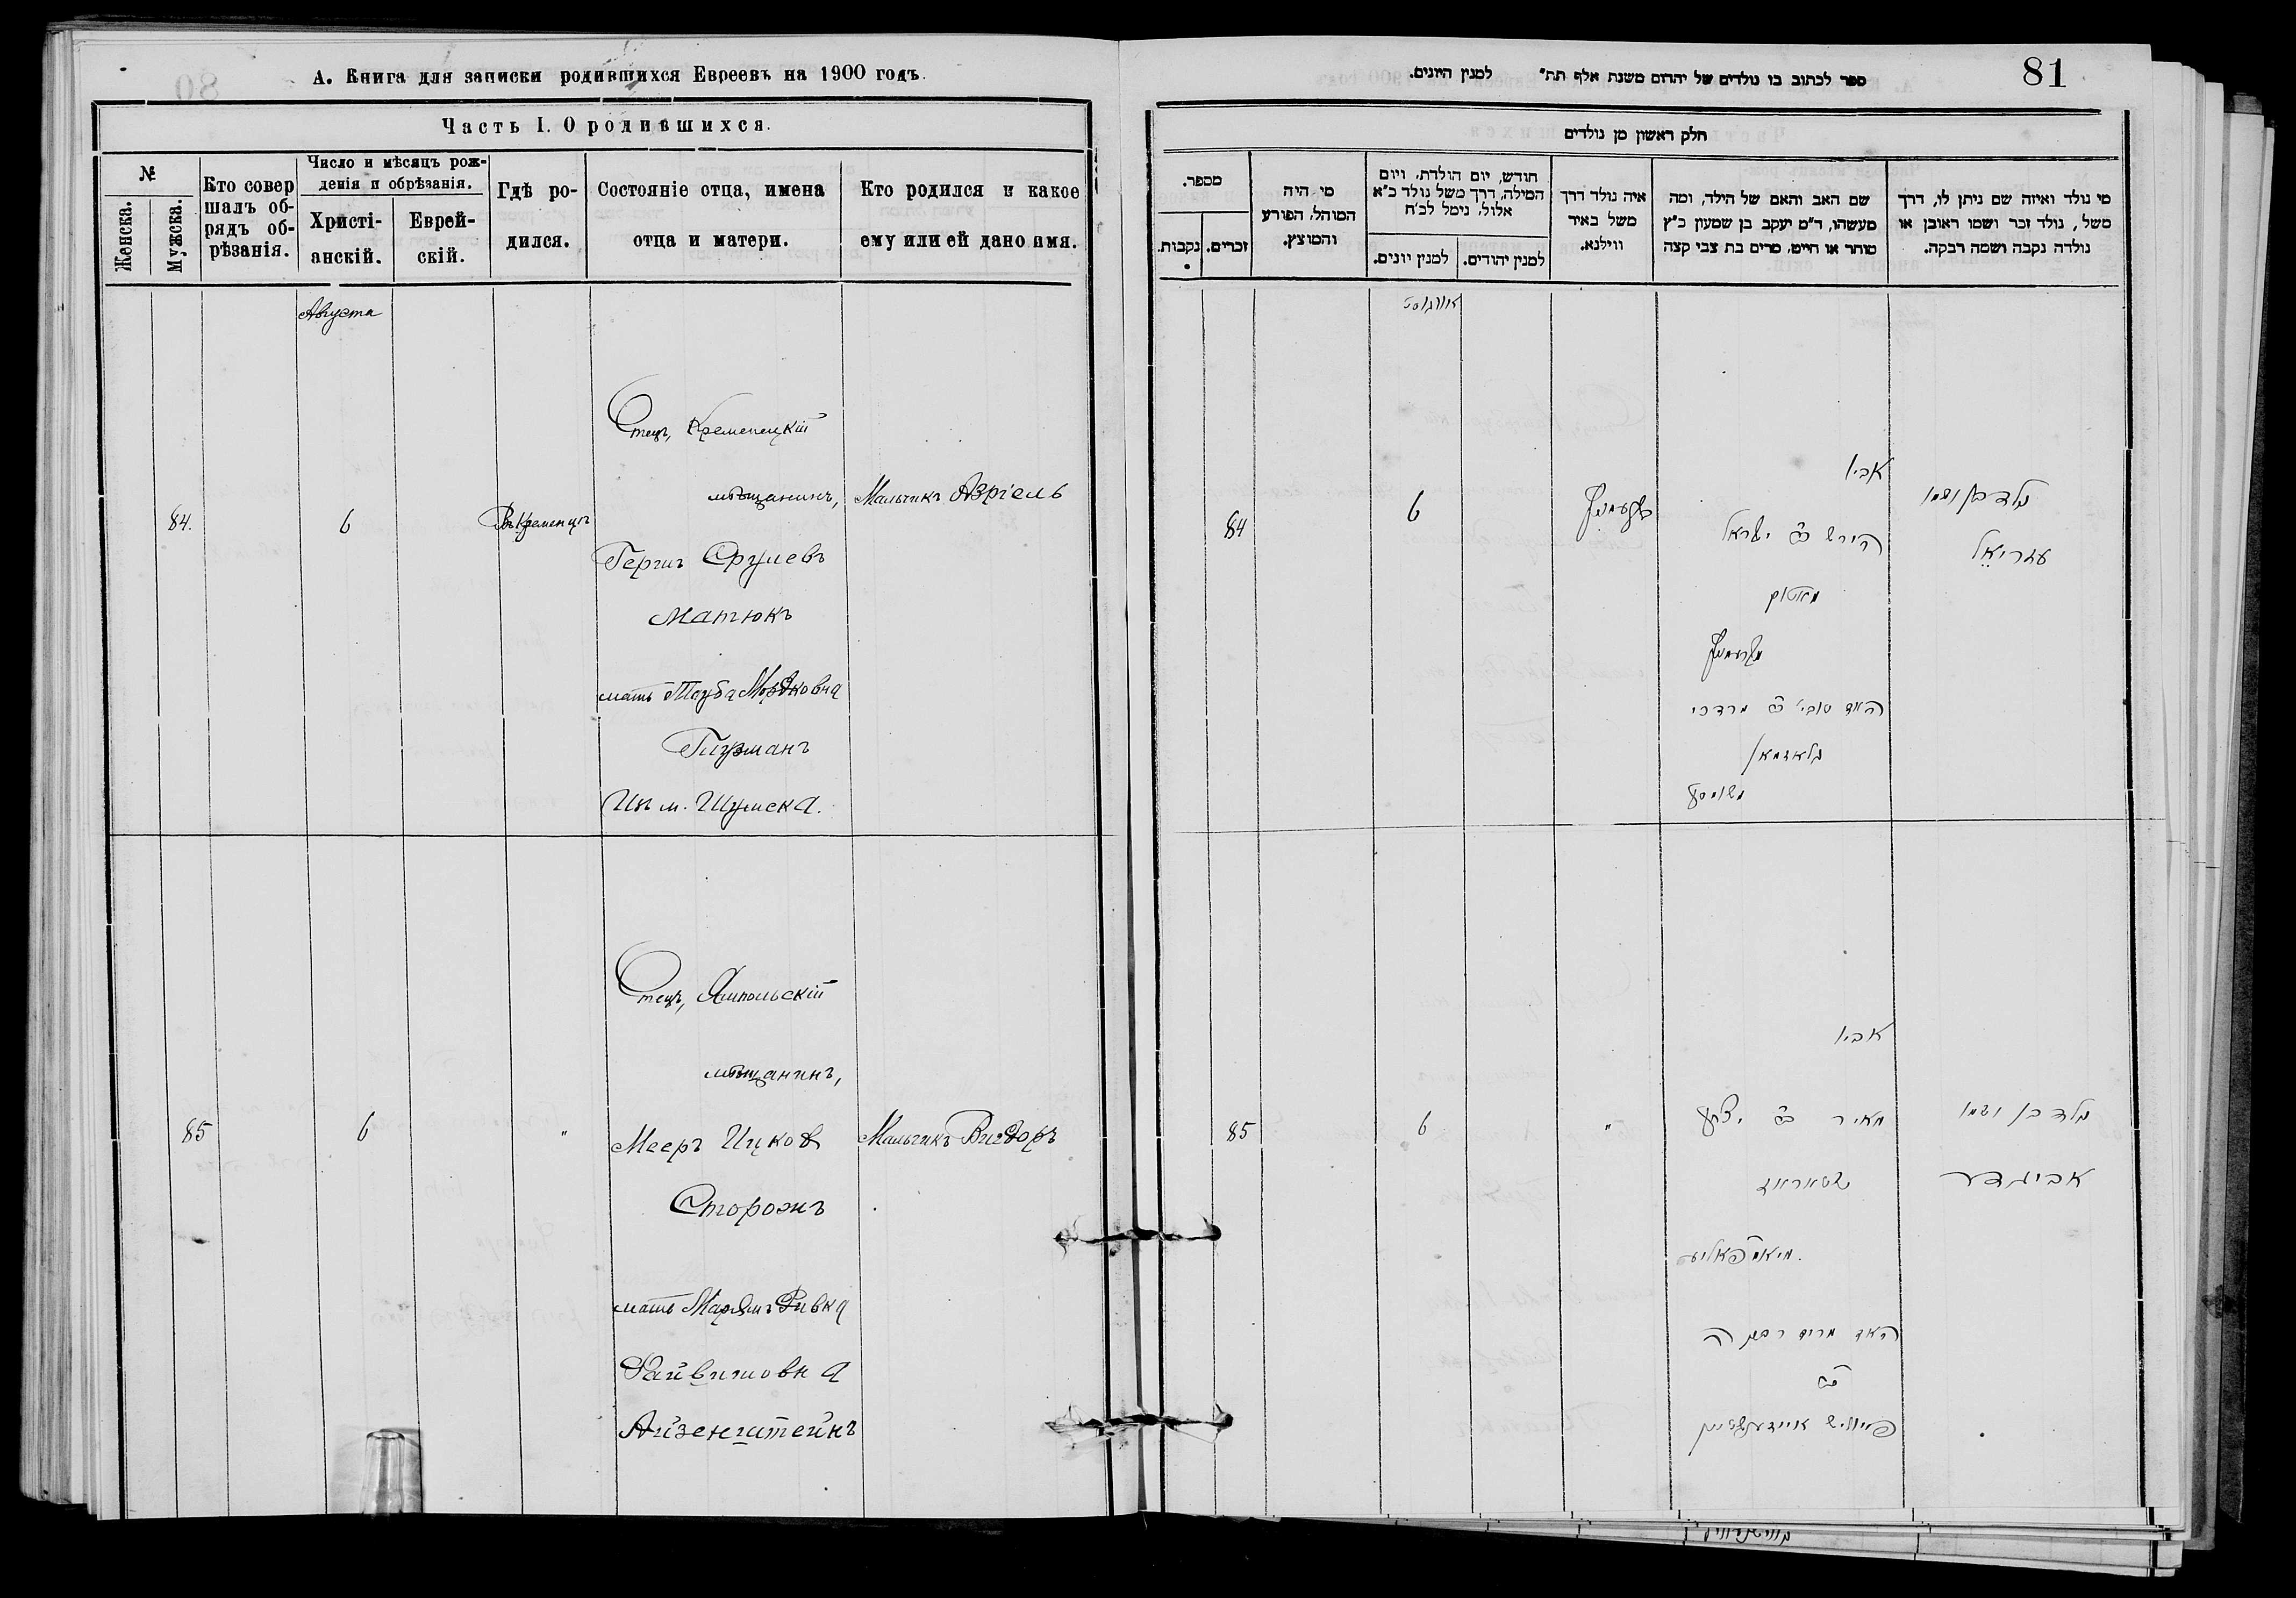 А. Книга для записки родившихся Евреевъ на 1900 годъ.
Часть I. О родившихся.
№
Женска.
Мужска.
Кто совер
шалъ об-
рядъ об-
рѣзанія.
Число и мѣсяцъ рож-
денія и обрѣзанія.
Христі-
анскій.
Еврей-
скій.
Гдѣ ро-
дился.
Состояніе отца, имена
отца и матери.
Кто родился и какое
ему или ей дано имя.
Августа
84.
6
Въ Кременцѣ
Отецъ, Кременецкій
мѣщанинъ,
Гершъ Срулевъ
Матюкъ
мать Тауба Мордковна
Гирманъ
Изъ м. Шумска.
Мальчикъ Азріель
85
6
"
Отецъ, Ямпольскій
мѣщанинъ,
Мееръ Ицков
Сторожъ
мать Марьямъ Ривка
Файвишовна
Айзенштейнъ
Мальчикъ Вигдоръ
81
ספר לכתוב בו נולדים של יהדום משנת אלף תת״ למנין היונים.
חלק ראשון מן נולדים
מספר.
נקבות.
זכרים.
מי היה
המוהל, הפורע
והמוצץ.
חודש, יום הולדת, ויום
המילה, דרך משל נולד כ״א
אלול, נימל לכ״ח
למנין יונים.
למנין יהודים.
איה נולד דרך
משל באיר
ווילנא.
שם האב והאם של הילד, ומה
מעשהו, ד״מ יעקב בן שמעון כ״ץ
סוחר או חייט, מרים בת צבי קצה
מי נולד ואיזה שם ניתן לו, דרך
משל, נולד זכר ושמו ראובן או
נולדה נקבה ושמה רבקה.
אווגוסט
84
6
אביו
הירש ב״ר ישראל
מאטוק
האם טובי׳ ב״ר מרדכי
נולד בן ושמו
עזריאל
85
6
"
אביו
מאיר ב״ר יצחק
שטאראז
מיאמפאליע
האם מרים רבקה
ב״ר
פייוויש אייזענשטיין
נולד בן ושמו
אביגדור